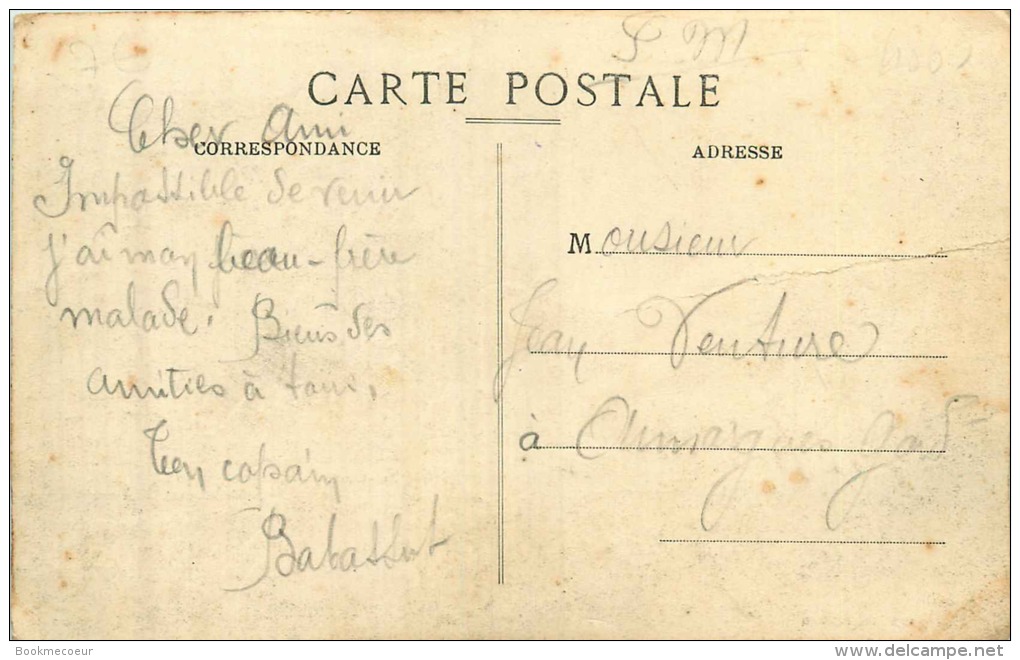 S M
CARTE POSTALE
Cher Ami
CORRESPONDANCE
Impossible de venir
j'ai mon beau-frère
malade. Biens des
amitiés à tous,
Ton copain
Babassut
ADRESSE
Monsieur
Jean Venture
à Aimargues Gard
Bookmecoeur
delcampe.net